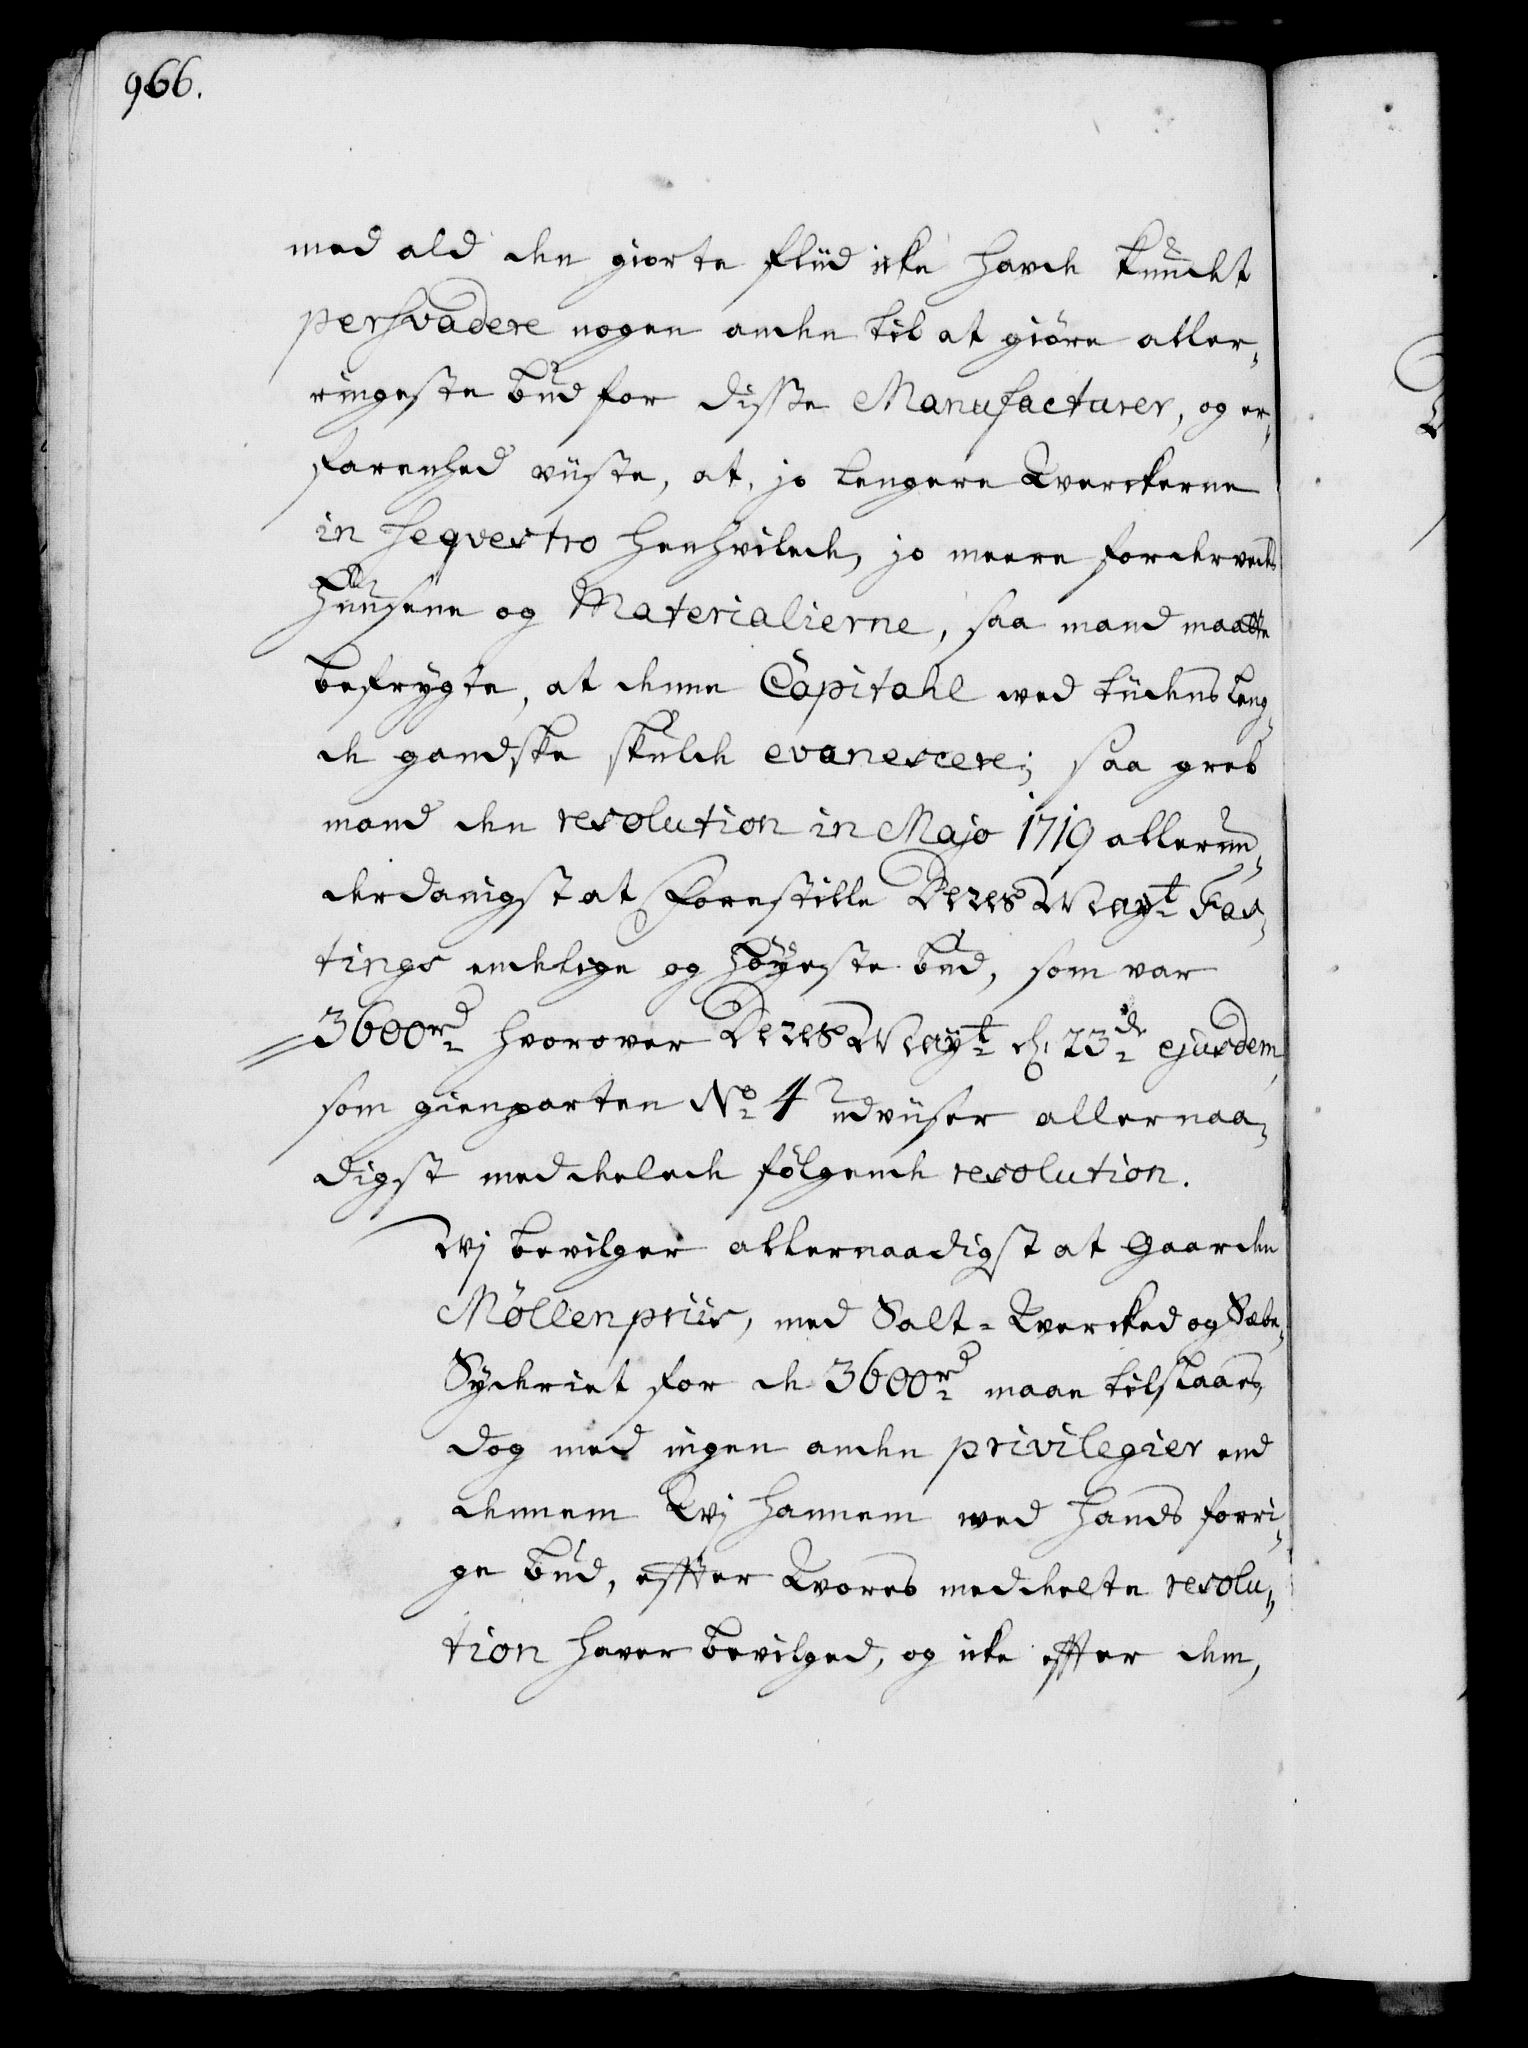 966.
med ald den giorte fliid icke hafde kundet
persvadere nogen anden til at giöre aller,,
ringeste bud for disse Manufacturer, og er,,
farenhed viiste, at, jo lengere Werckerne
in seqvestro henhvilede, jo meere fordervedes
Huusene og Materialierne, saa mand maatte
befrygte, at denne Capitahl wed tiidens leng,,
de gandske skulde evanescere; saa greb
mand den resolution in Majo 1719 allerun,,
derdanigst at forestille Deres Mayt Fas,,
tings endelige og höyeste bud, som var
3600 rd hvorover Deres Mayt d. 23de ejusdem,
som gienparten No 4 udviiser allernaa,,
digst meddelede fölgende resolution.
Wj bevilger allernaadigst at Gaarden
Möllenpriis, med Salt-Wercked og Sæbe,,
Syderiet for de 3600 rd maae tilslaaes,
dog med ingen anden privilegier end
dennem Wj hannem wed hands forri,,
ge bud, effter Wores meddelte resolu,,
tion haver bevilged, og icke effter dem,